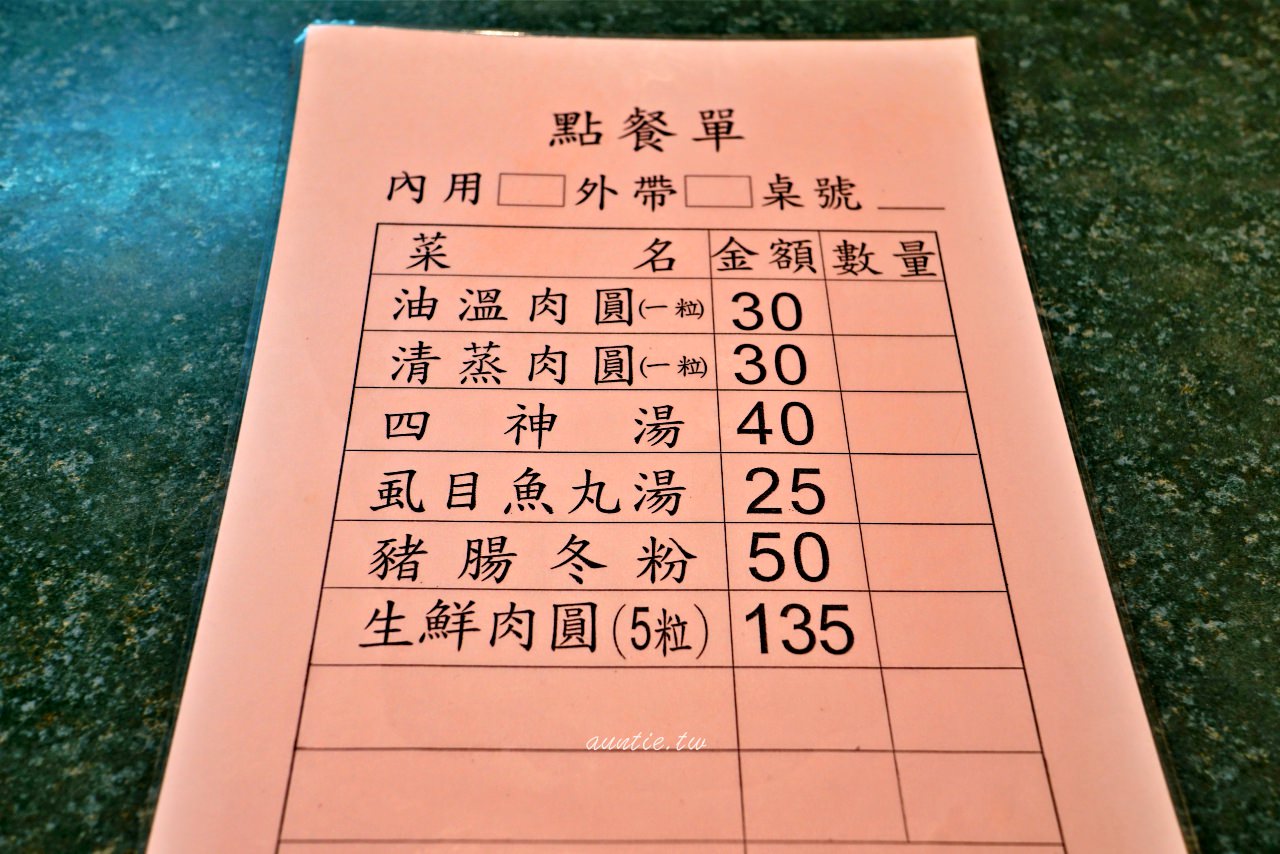 點餐單
內用 外帶 桌號
菜名 金額 數量
油溫肉圓(一粒) 30
清蒸肉圓(一粒) 30
四神湯 40
虱目魚丸湯 25
豬腸冬粉 50
生鮮肉圓(5粒) 135
auntie.tw